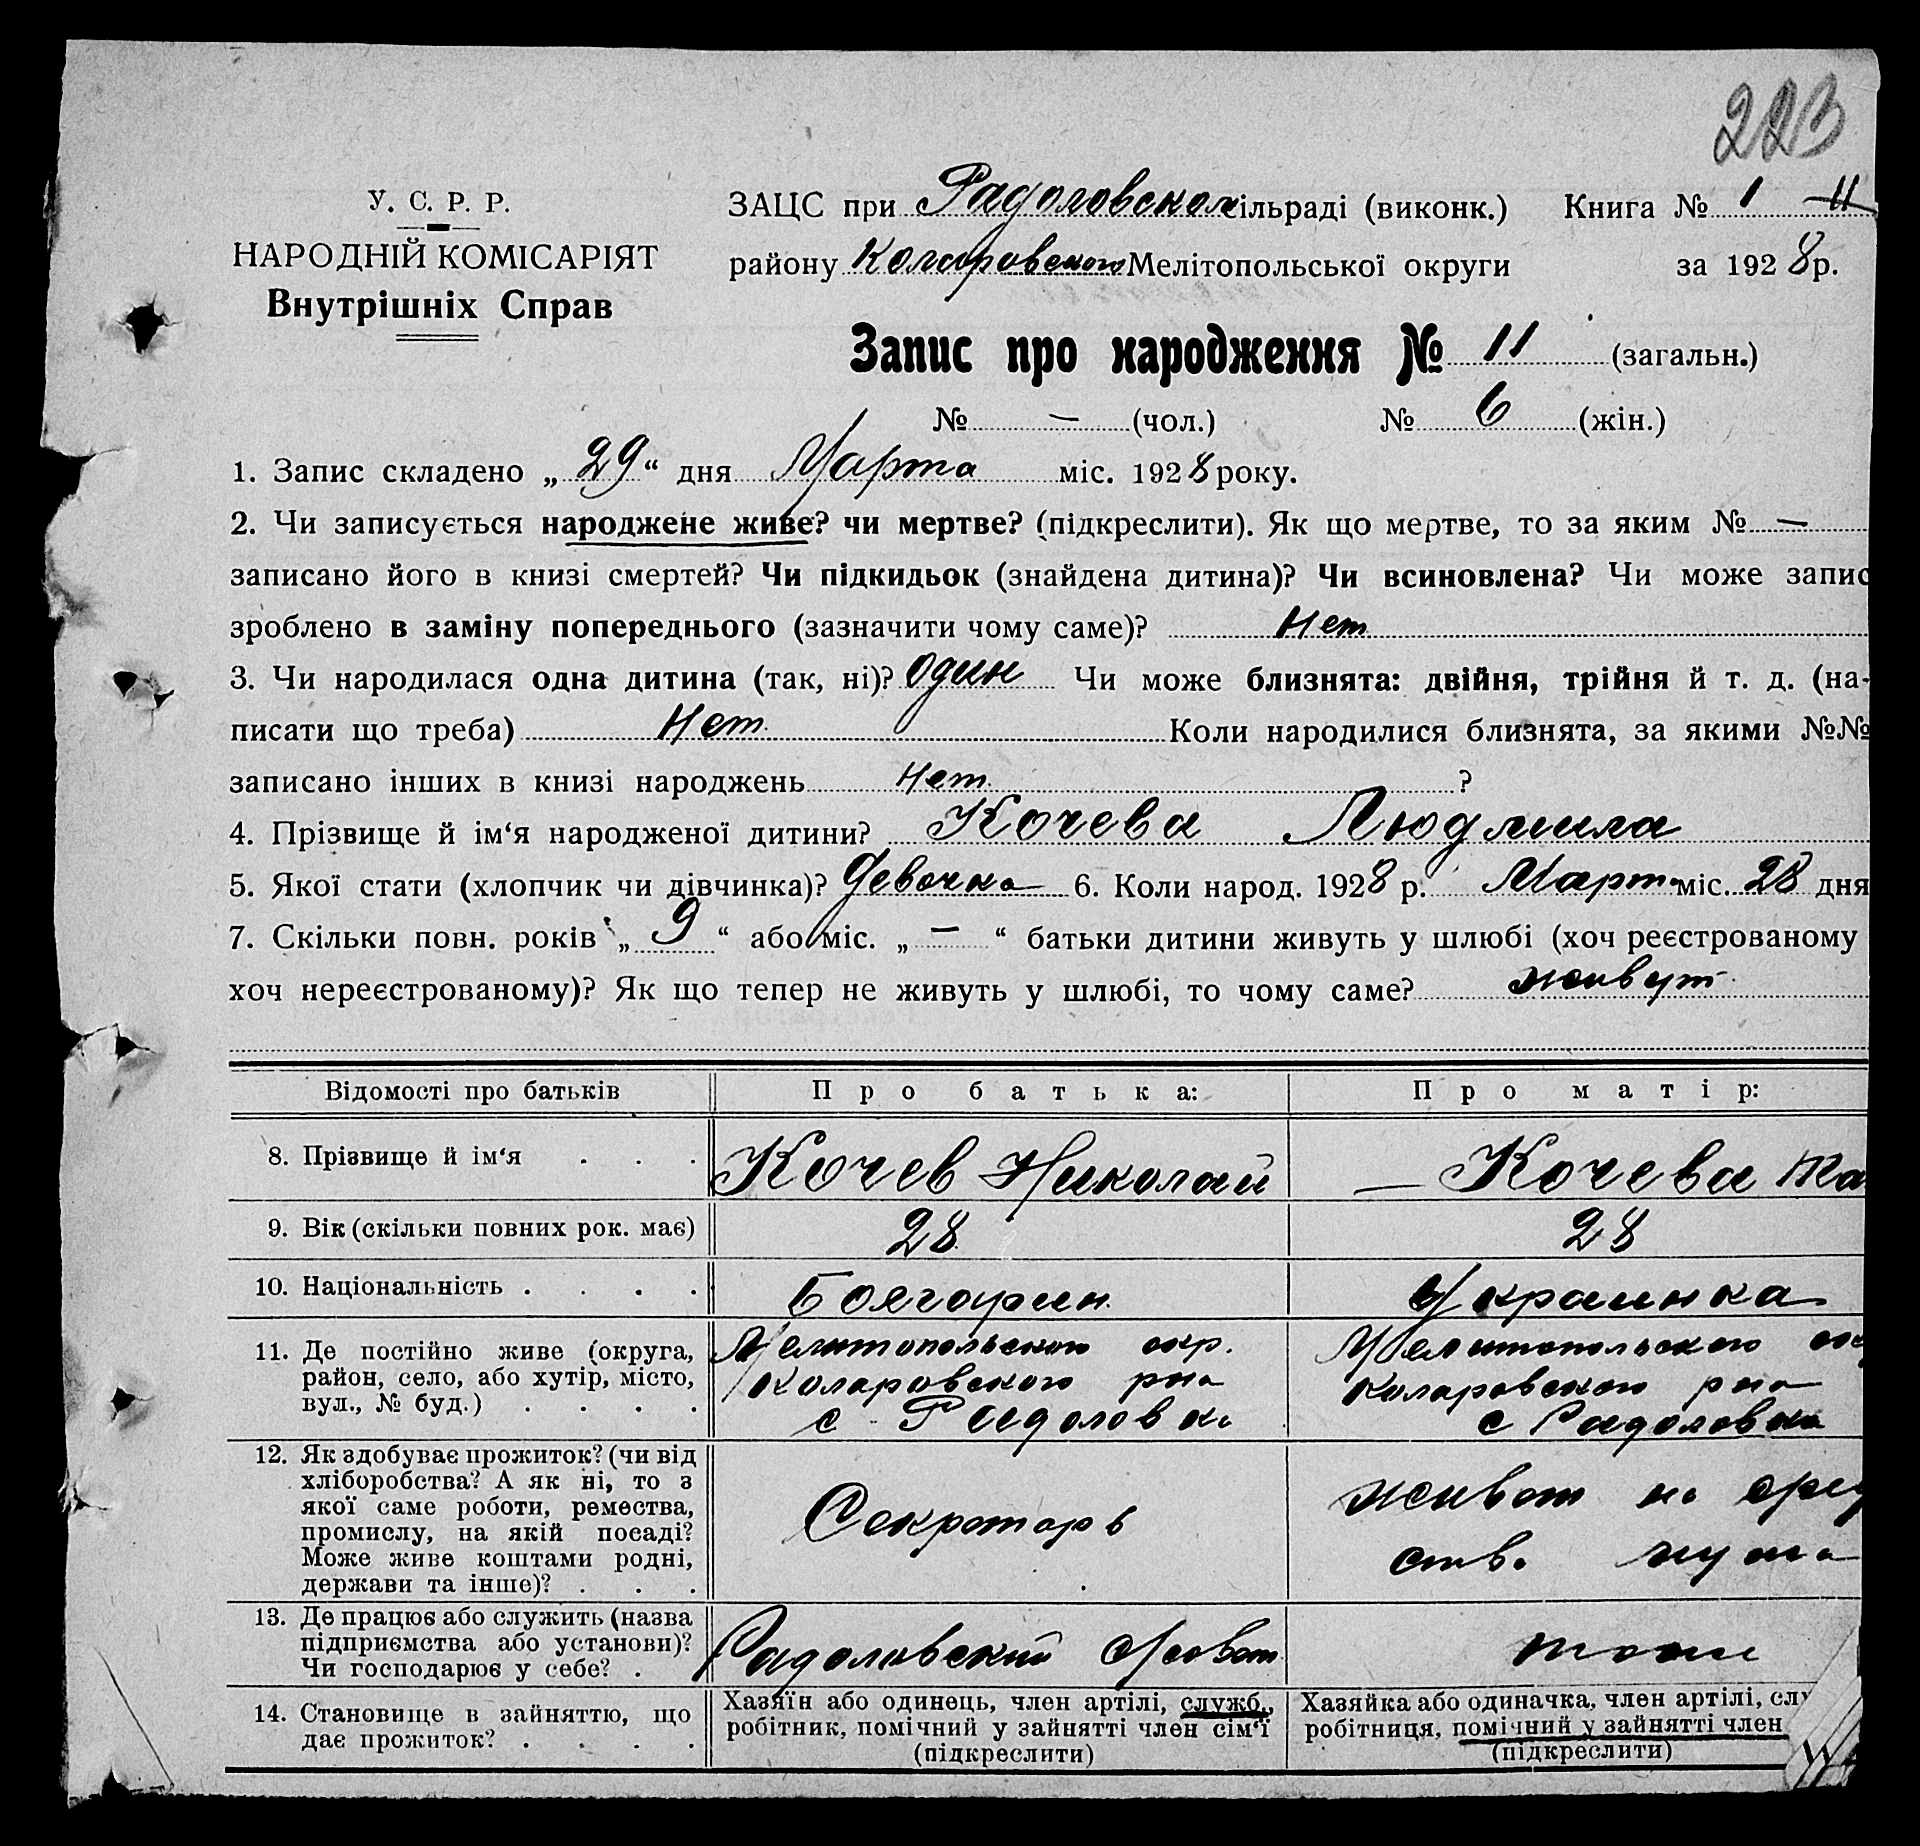 223
У. С. Р. Р.
НАРОДНІЙ КОМІСАРІЯТ
Внутрішніх Справ
ЗАЦС при Радоловском сільраді (виконк.) Книга № 1 – 11
району Коларовского Мелітопольської округи за 1928 р.
Запис про народження № 11 (загальн.)
№ – (чол.) № 6 (жін.)
1. Запис складено „29“ дня Марта міс. 1928 року.
2. Чи записується народжене живе? чи мертве? (підкреслити). Як що мертве, то за яким № –
записано його в книзі смертей? Чи підкидьок (знайдена дитина)? Чи всиновлена? Чи може запис
зроблено в заміну попереднього (зазначити чому саме)? Нет
3. Чи народилася одна дитина (так, ні)? один Чи може близнята: двійня, трійня й т. д. (на-
писати що треба) Нет Коли народилися близнята, за якими №№
записано інших в книзі народжень нет ?
4. Прізвище й ім‘я народженої дитини? Кочева Людмила
5. Якої стати (хлопчик чи дівчинка)? Девочка 6. Коли народ. 1928 р. Марта міс. 28 дня
7. Скільки повн. років „9“ або міс. „–“ батьки дитини живуть у шлюбі (хоч реєстрованому
хоч нереєстрованому)? Як що тепер не живуть у шлюбі, то чому саме? живут
Відомості про батьків Про батька: Про матір:
8. Прізвище й ім‘я . . . Кочев Николай – Кочева
9. Вік (скільки повних рок. має) 28 28
10. Національність . . . . Болгарин Украинка
11. Де постійно живе (округа, Мелитопольского окр. Мелитопольского
район, село, або хутір, місто, Коларовского рна Коларовского рна
вул., № буд.) . . . . с Радоловка с Радоловка
12. Як здобуває прожиток? (чи від
хліборобства? А як ні, то з
якої саме роботи, ремества, Секротарь на сред
промислу, на якій посаді?
Може живе коштами родні, ства мужа
держави та інше)? . . .
13. Де працює або служить (назва
підприємства або установи)? Радоловский
Чи господарює у себе? .
14. Становище в зайняттю, що Хазяїн або одинець, член артілі, служб., Хазяйка або одиначка, член артілі, слу
дає прожиток? . . . . робітник, помічний у зайнятті член сім‘ї робітниця, помічний у зайнятті член
(підкреслити) (підкреслити)